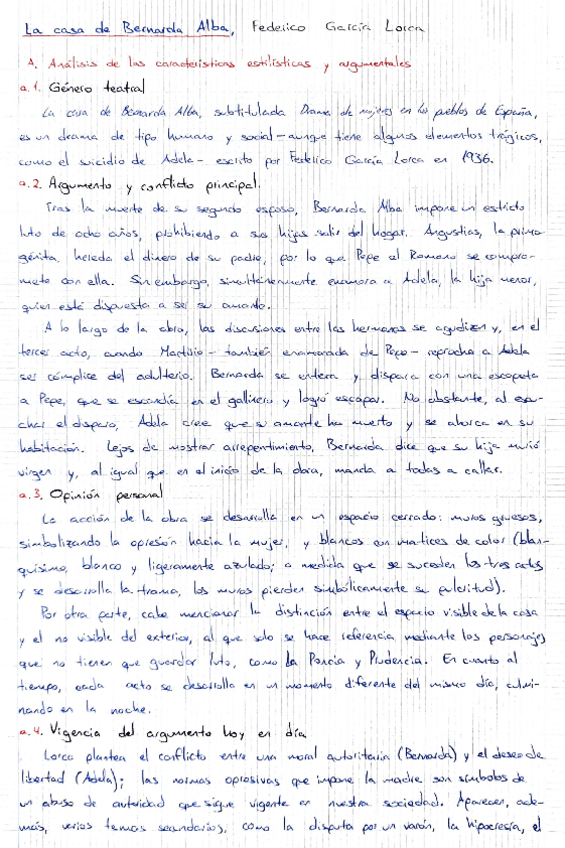 La casa de Bernarda Alba, Federico García Lorca
A. Análisis de las características estilísticas y argumentales
a.1. Género teatral
La casa de Bernarda Alba, subtitulada Drama de mujeres en los pueblos de España,
es un drama de tipo humano y social - aunque tiene algunos elementos trágicos,
como el suicidio de Adela - escrito por Federico García Lorca en 1936.
a.2. Argumento y conflicto principal.
Tras la muerte de su segundo esposo, Bernarda Alba impone un estricto
luto de ocho años, prohibiendo a sus hijas salir del hogar. Angustias, la primo-
génita, hereda el dinero de su padre, por lo que Pepe el Romano se compro-
mete con ella. Sin embargo, simultáneamente enamora a Adela, la hija menor,
quien está dispuesta a ser su amante.
A lo largo de la obra, las discusiones entre las hermanas se agudizan y, en el
tercer acto, cuando Martirio - también enamorada de Pepe - reprocha a Adela
ser cómplice del adulterio. Bernarda se entera y dispara con una escopeta
a Pepe, que se escondía en el gallinero y logró escapar. No obstante, al escu-
char el disparo, Adela cree que su amante ha muerto y se ahorca en su
habitación. Lejos de mostrar arrepentimiento, Bernarda dice que su hija murió
virgen y, al igual que en el inicio de la obra, manda a todas a callar.
a.3. Opinión personal
La acción de la obra se desarrolla en un espacio cerrado: muros gruesos,
simbolizando la opresión hacia la mujer, y blancos con matices de color (blan-
quísimo, blanco y ligeramente azulado; a medida que se suceden los tres actos
y se desarrolla la trama, los muros pierden simbólicamente su pulcritud).
Por otra parte, cabe mencionar la distinción entre el espacio visible de la casa
y el no visible del exterior, al que solo se hace referencia mediante los personajes
que no tienen que guardar luto, como la Poncia y Prudencia. En cuanto al
tiempo, cada acto se desarrolla en un momento diferente del mismo día, culmi-
nando en la noche.
a.4. Vigencia del argumento hoy en día
Lorca plantea el conflicto entre una moral autoritaria (Bernarda) y el deseo de
libertad (Adela); las normas opresivas que impone la madre son símbolos de
un abuso de autoridad que sigue vigente en nuestra sociedad. Aparecen, ade-
más, varios temas secundarios, como la disputa por un varón, la hipocresía, el